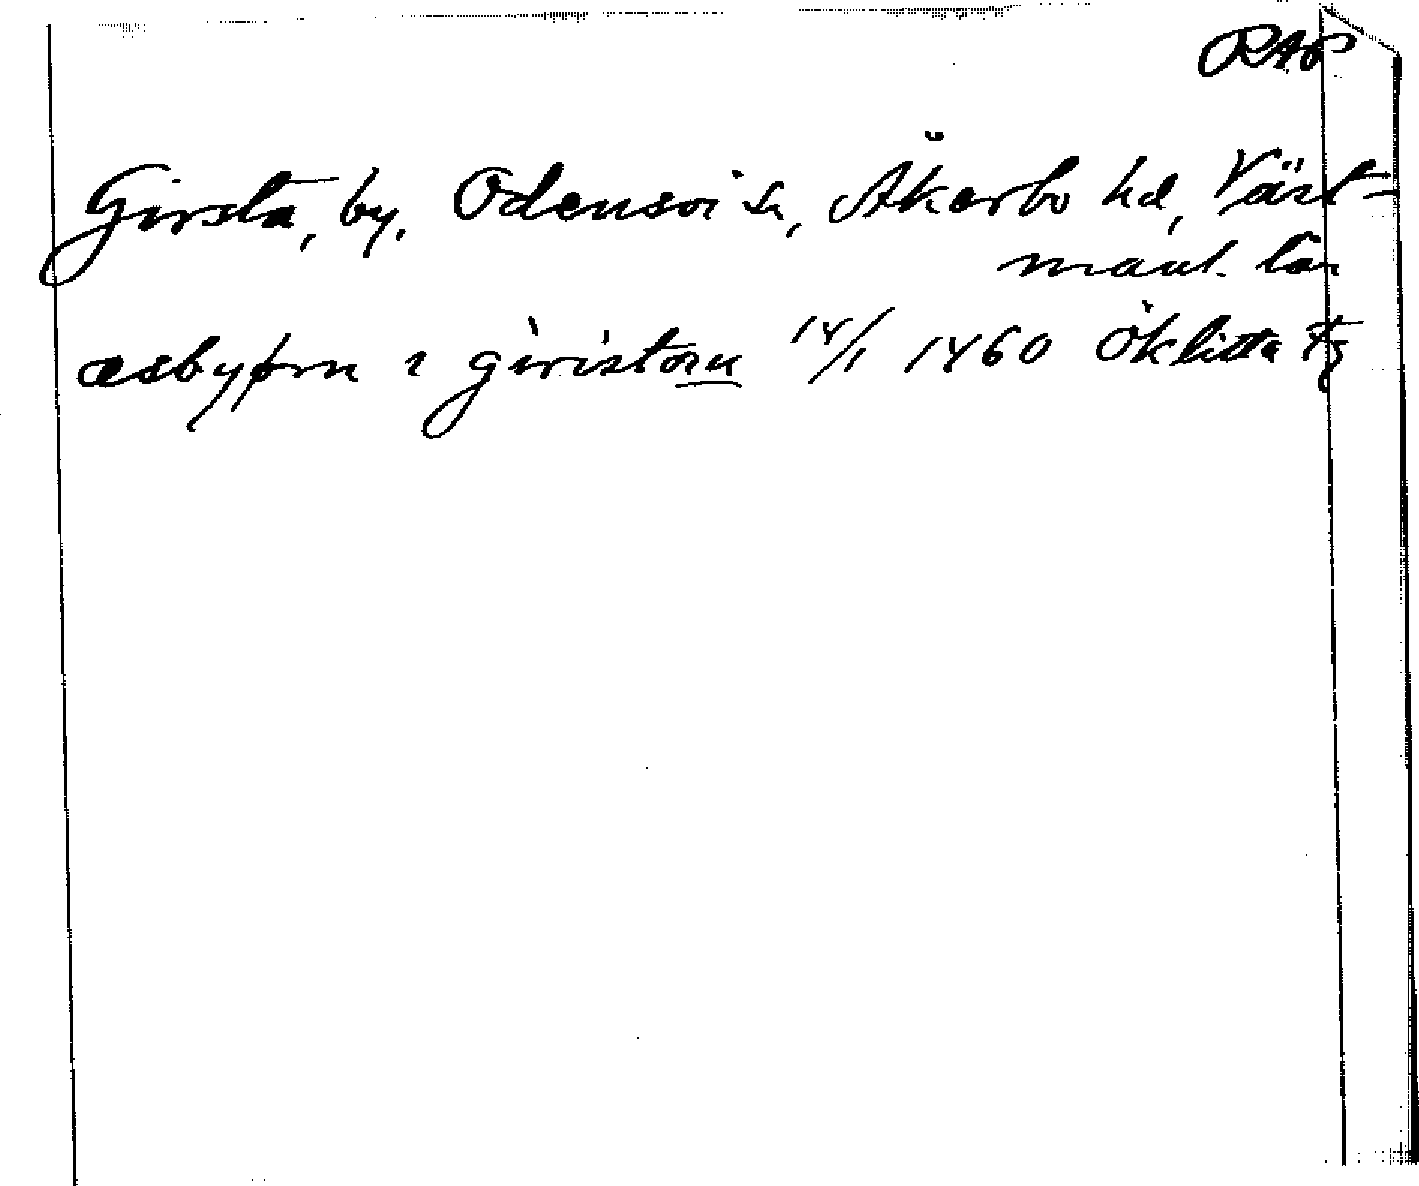 RAP
Girsta, by, Odensvi sn, Åkerbo hd, Väst-
manl. län
æsbyørn i giristom 14/1 1460 Öklitta